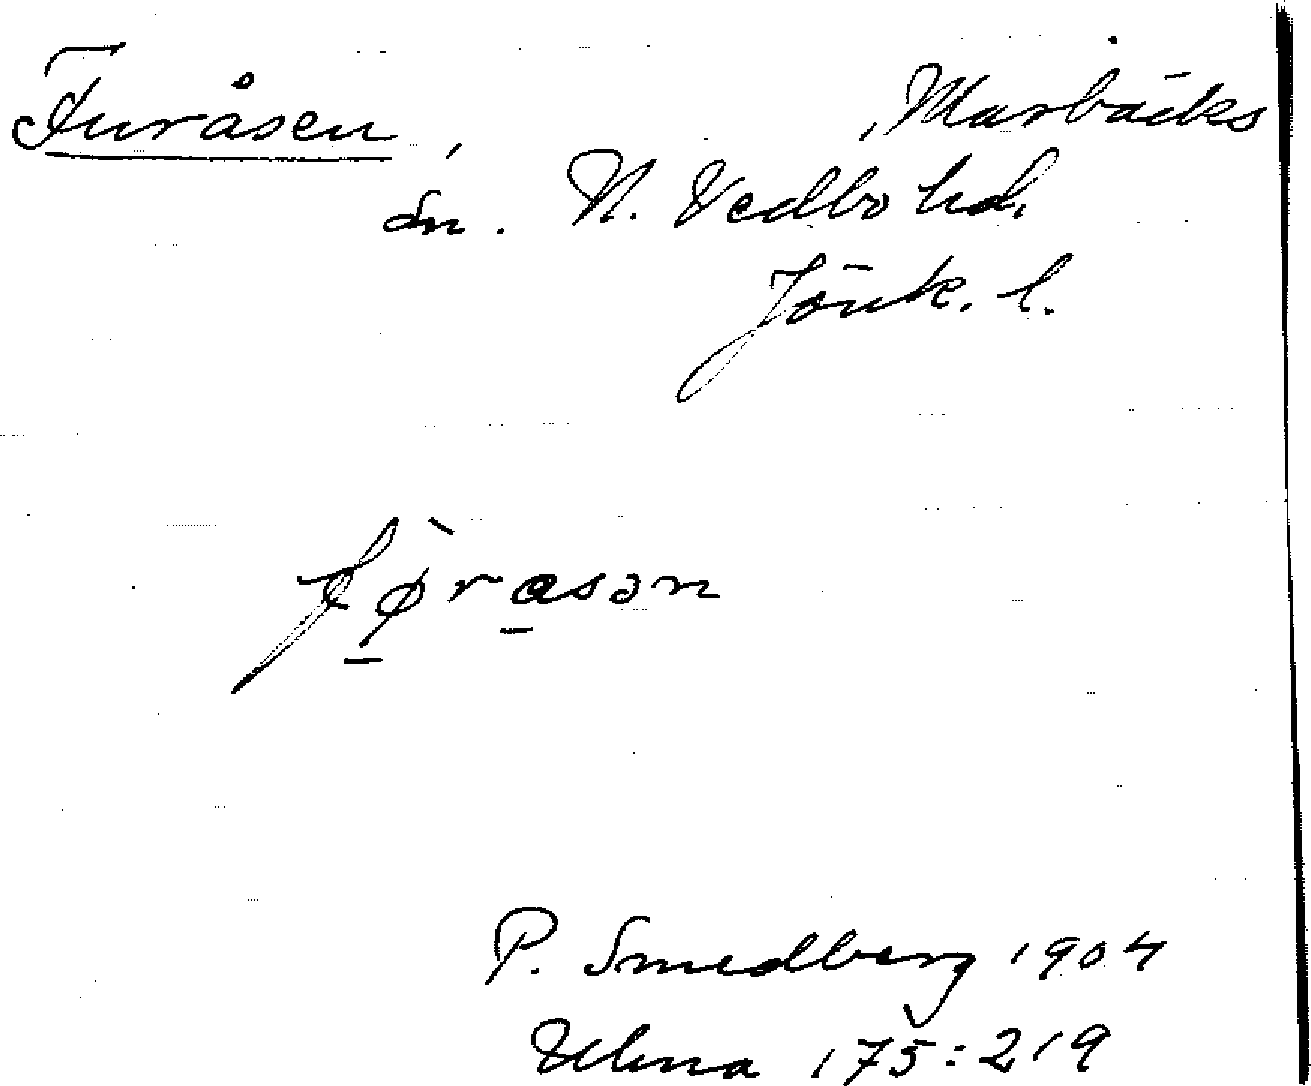 Furåsen, Marbäcks
sn. N. Vedbo hd,
Jönk. l.
fø̱̀ra̱sən
P. Smedberg 1904
Ulma 175:219